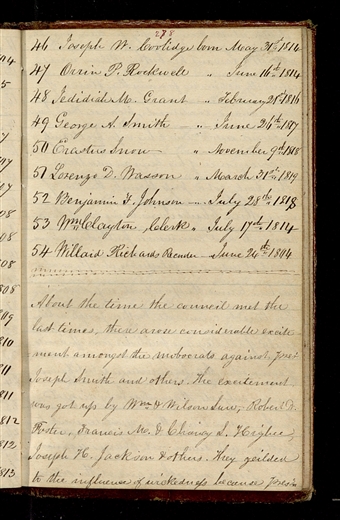 278
46 Joseph W. Coolidge born May 31st 1814
47 Orrin P. Rockwell " June 16th 1814
48 Jedidiah M. Grant " February 21st 1816
49 George A. Smith — " — June 26th 1817
50 Erastus Snow — " November 9th 1818
51 Lorenzo D. Wasson " March 31st 1819
52 Benjamin F. Johnson — " July 28th 1818
53 Wm Clayton Clerk " July 17th 1814
54 Willard Richards Recorder — June 24th 1804
About the time the council met the
last times, there arose considerable excite
ment amongst the mobocrats against Prest
Joseph Smith and others. The excitement
was got up by Wm & Wilson Law, Robert D.
Foster, Francis M. & Chancy L. Higbee,
Joseph H. Jackson & others. They yeilded
to the influence of wickedness because